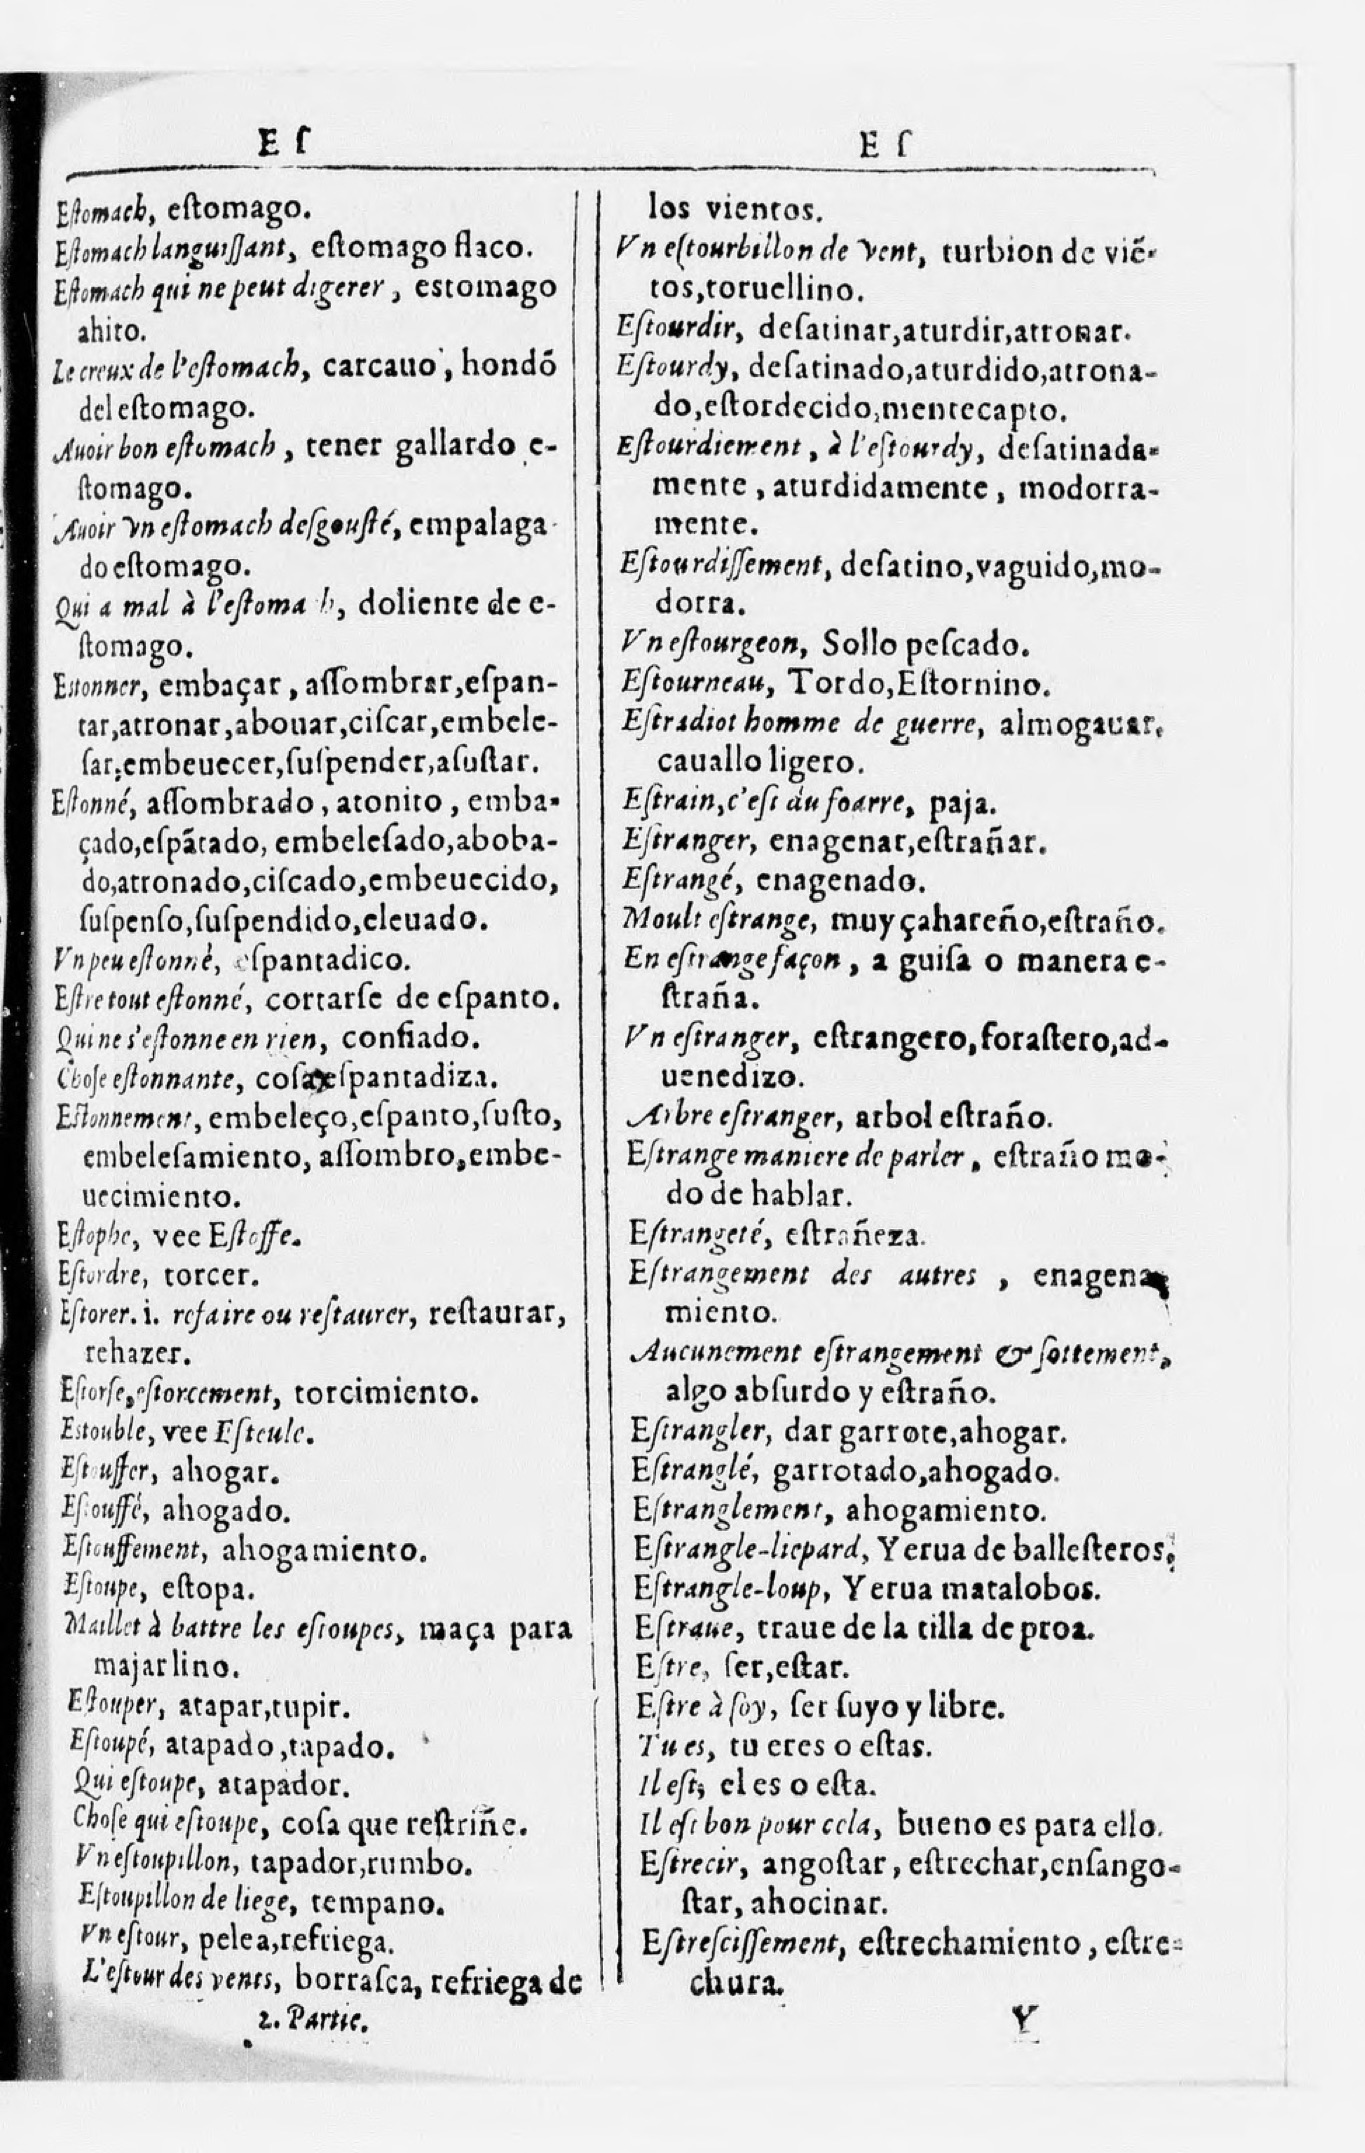 E ſ
E ſ
Eſtomach, eſtomago.
Eſtomach languiſſant, eſtomago flaco.
Eſtomach qui ne peut digerer, estomago
ahito.
Le creux de l'eſtomach, carcauo, hondō
del eſtomago.
Auoir bon eſtomach, tener gallardo e-
ſtomago.
Auoir vn eſtomach deſgouſté, empalaga
do eſtomago.
Qui a mal à l'eſtoma h, doliente de e-
ſtomago.
Estonner, embaçar, aſſombrar, eſpan-
tar, atronar, abouar, ciſcar, embele-
ſar, embeuecer, ſuſpender, aſuſtar.
Eſtonné, aſſombrado, atonito, emba-
çado, eſpātado, embeleſado, aboba-
do, atronado, ciſcado, embeuecido,
ſuſpenſo, ſuſpendido, eleuado.
Vn peu eſtonné, eſpantadico.
Eſtre tout eſtonné, cortarſe de eſpanto.
Qui ne s'eſtonne en rien, confiado.
Choſe eſtonnante, coſa eſpantadiza.
Eſtonnement, embeleço, eſpanto, ſuſto,
embeleſamiento, aſſombro, embe-
uecimiento.
Eſtophe, vee Eſtoffe.
Eſtordre, torcer.
Eſtorer. i. refaire ou reſtaurer, reſtaurar,
rehazer.
Eſtorſe, eſtorcement, torcimiento.
Estouble, vee Eſteule.
Eſtouffer, ahogar.
Eſtouffé, ahogado.
Eſtouffement, ahogamiento.
Eſtoupe, eſtopa.
Maillet à battre les eſtoupes, maça para
majar lino.
Eſtouper, atapar, tupir.
Eſtoupé, atapado, tapado.
Qui eſtoupe, atapador.
Choſe qui eſtoupe, coſa que reſtriñe.
Vn eſtoupillon, tapador, rumbo.
Eſtoupillon de liege, tempano.
Vn eſtour, pelea, refriega.
L'eſtour des vents, borraſca, refriega de
2. Partie.
los vientos.
Vn eſtourbillon de vent, turbion de viē-
tos, toruellino.
Eſtourdir, deſatinar, aturdir, atronar.
Eſtourdy, deſatinado, aturdido, atrona-
do, eſtordecido, mentecapto.
Eſtourdiement, à l'eſtourdy, deſatinada-
mente, aturdidamente, modorra-
mente.
Eſtourdiſſement, deſatino, vaguido, mo-
dorra.
Vn eſtourgeon, Sollo peſcado.
Eſtourneau, Tordo, Eſtornino.
Eſtradiot homme de guerre, almogauar,
cauallo ligero.
Eſtrain, c'eſt du foarre, paja.
Eſtranger, enagenar, eſtrañar.
Eſtrangé, enagenado.
Moult eſtrange, muy çahareño, eſtraño.
En eſtrange façon, a guiſa o manera e-
ſtraña.
Vn eſtranger, eſtrangero, foraſtero, ad-
uenedizo.
Arbre eſtranger, arbol eſtraño.
Eſtrange maniere de parler, eſtraño mo-
do de hablar.
Eſtrangeté, eſtrañeza.
Eſtrangement des autres, enagena
miento.
Aucunement eſtrangement & ſottement,
algo abſurdo y eſtraño.
Eſtrangler, dar garrote, ahogar.
Eſtranglé, garrotado, ahogado.
Eſtranglement, ahogamiento.
Eſtrangle-liepard, Yerua de balleſteros.
Eſtrangle-loup, Yerua matalobos.
Eſtraue, traue de la tilla de proa.
Eſtre, ſer, eſtar.
Eſtre à ſoy, ſer ſuyo y libre.
Tu es, tu eres o eſtas.
Il eſt, el es o eſta.
Il eſt bon pour cela, bueno es para ello.
Eſtrecir, angoſtar, eſtrechar, enſango-
ſtar, ahocinar.
Eſtreſciſſement, eſtrechamiento, eſtre-
chura.
Y